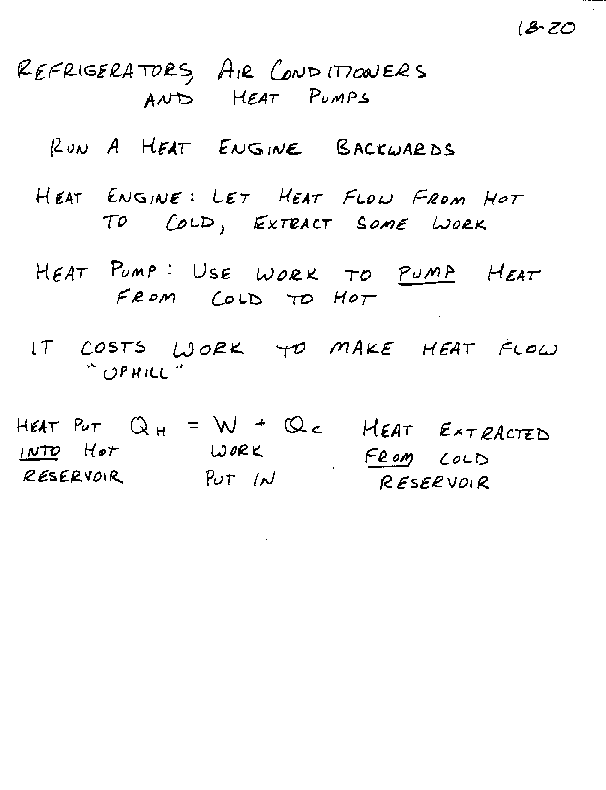 18-20
REFRIGERATORS, AIR CONDITIONERS
AND HEAT PUMPS
RUN A HEAT ENGINE BACKWARDS
HEAT ENGINE: LET HEAT FLOW FROM HOT
TO COLD, EXTRACT SOME WORK
HEAT PUMP: USE WORK TO PUMP HEAT
FROM COLD TO HOT
IT COSTS WORK TO MAKE HEAT FLOW
"UPHILL"
HEAT PUT Q_H = W + Q_C HEAT EXTRACTED
INTO HOT WORK FROM COLD
RESERVOIR PUT IN RESERVOIR